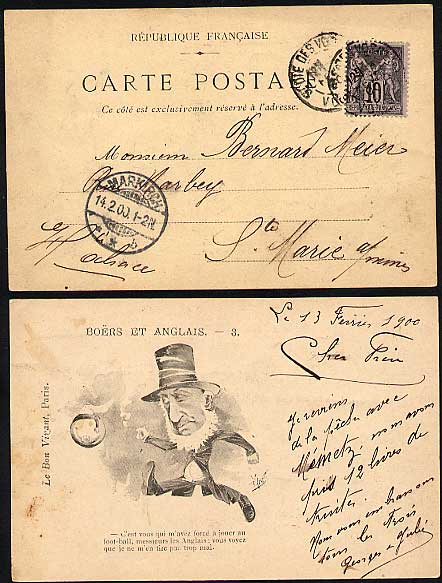 RÉPUBLIQUE FRANÇAISE
CARTE POSTA
Ce côté est exclusivement réservé à l'adresse.
10
Monsieur Bernard Meier
MARKIRCH
14.2.00.1-2N
Ste Marie a/mines
Alsace
BOËRS ET ANGLAIS. — 3.
Le Bon Vivant, Paris.
— C'est vous qui m'avez forcé à jouer au
foot-ball, messieurs les Anglais; vous voyez
que je ne m'en tire pas trop mal.
Le 13 Février 1900
Cher
je reviens
de la pêche avec
nous avons
pris 12 livres de
truites.
Nous vous embrassons
tous les trois
Georges Julie